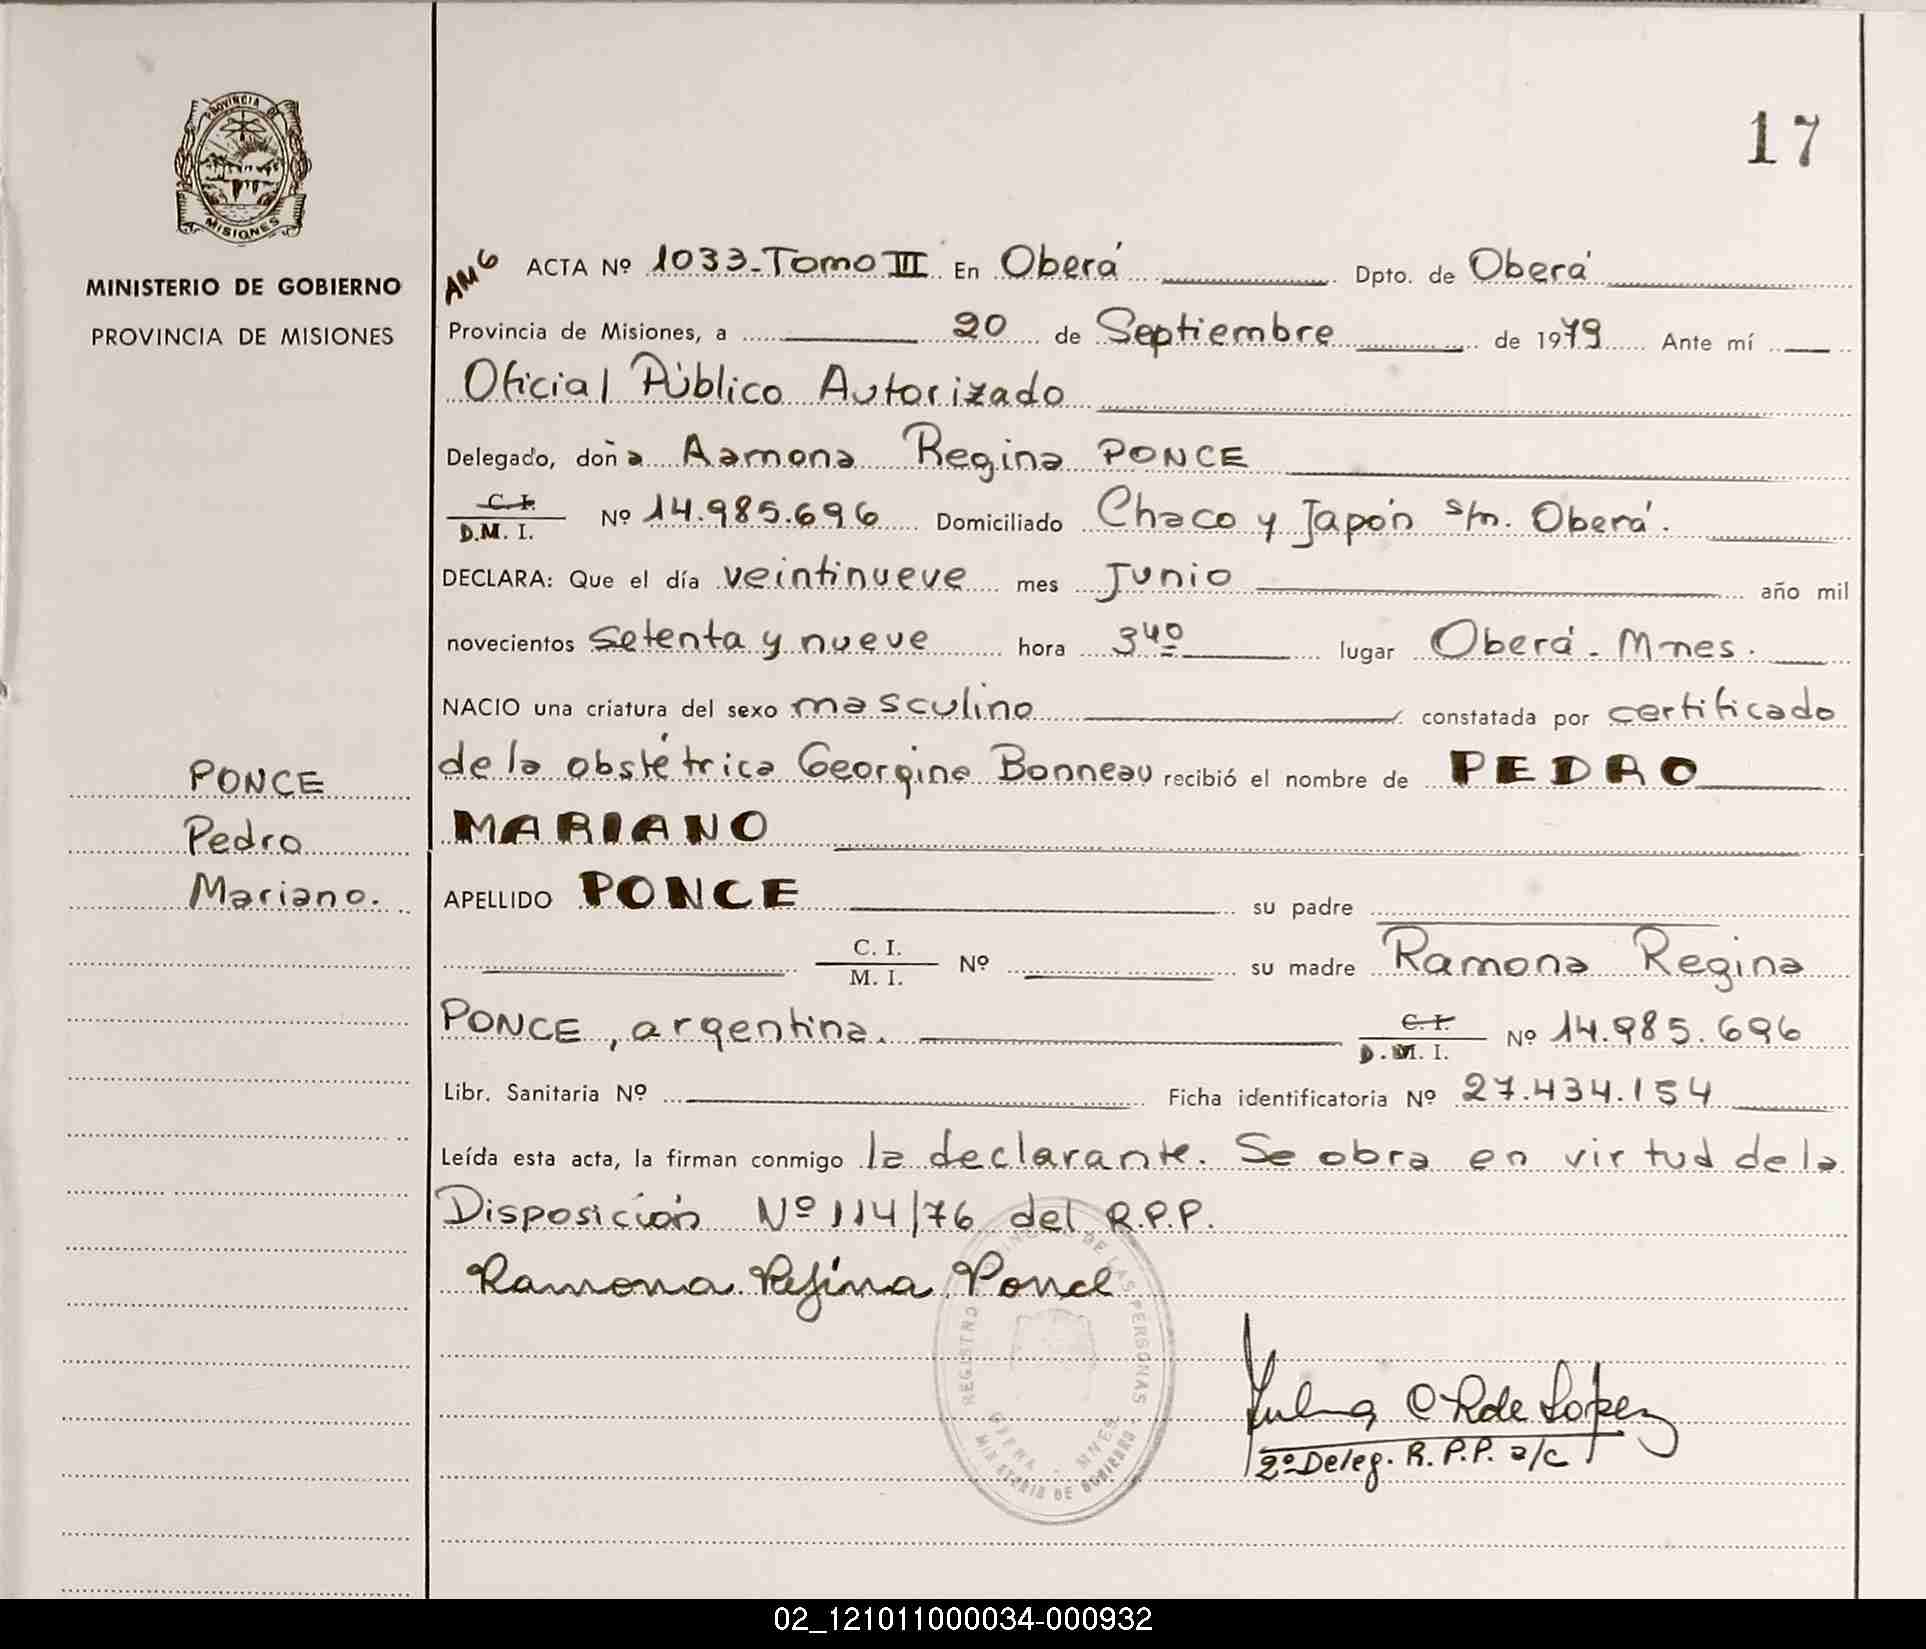 PROVINCIA DE
MISIONES
MINISTERIO DE GOBIERNO
PROVINCIA DE MISIONES
17
AMG ACTA Nº 1033-Tomo III En Oberá Dpto. de Oberá
Provincia de Misiones, a 20 de Septiembre de 1979 Ante mí
Oficial Público Autorizado
Delegado, doña Ramona Regina PONCE
C. I.
D.M. I. Nº 14.985.696 Domiciliado Chaco y Japón s/n. Oberá.
DECLARA: Que el día veintinueve mes Junio año mil
novecientos setenta y nueve hora 3 40 lugar Oberá - Mnes.
NACIO una criatura del sexo masculino constatada por certificado
de la obstétrica Georgina Bonneau recibió el nombre de PEDRO
MARIANO
PONCE
Pedro
Mariano.
APELLIDO PONCE su padre
C. I.
M. I. Nº su madre Ramona Regina
PONCE, argentina. C. I.
D. M. I. Nº 14.985.696
Libr. Sanitaria Nº Ficha identificatoria Nº 27.434.154
Leída esta acta, la firman conmigo la declarante. Se obra en virtud de la
Disposición Nº 114/76 del R.P.P.
Ramona Regina Ponce
REGISTRO PROVINCIAL DE LAS PERSONAS
OBERA - MNES
MINISTERIO DE GOBIERNO
de López
2º Deleg. R.P.P. a/c
02_121011000034-000932